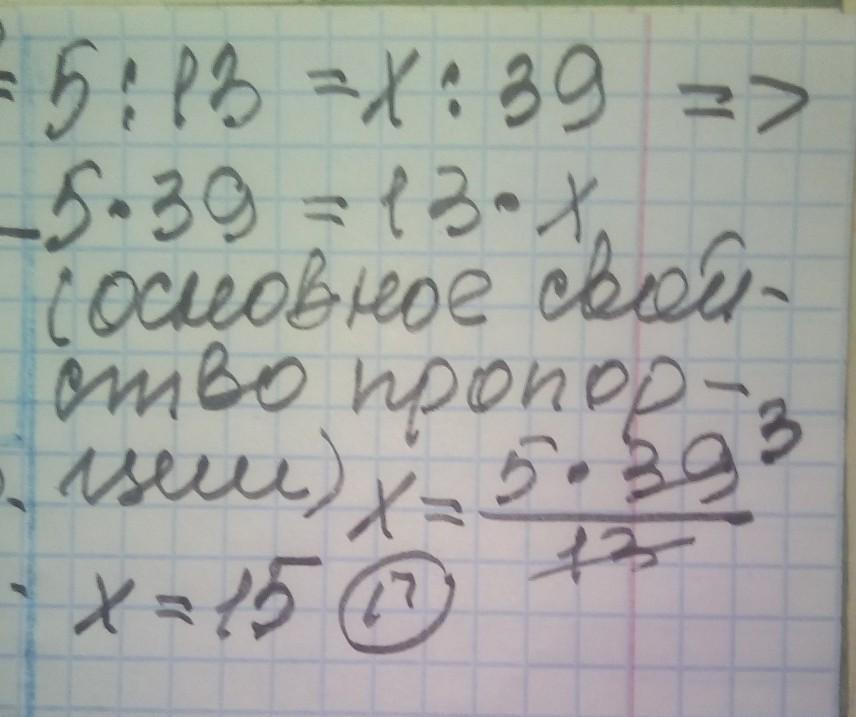 = 5 : 13 = x : 39 =>
5 · 39 = 13 · x
(основное свой-
ство пропор-
ции) x = 5 · 39 3
13
x = 15